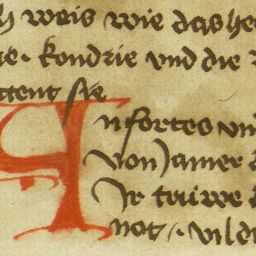 h weis wie das he
e · kondrie vnd die
ttent sie
Anfortes vn
von Jamer
Ir trüwe
not / · vil